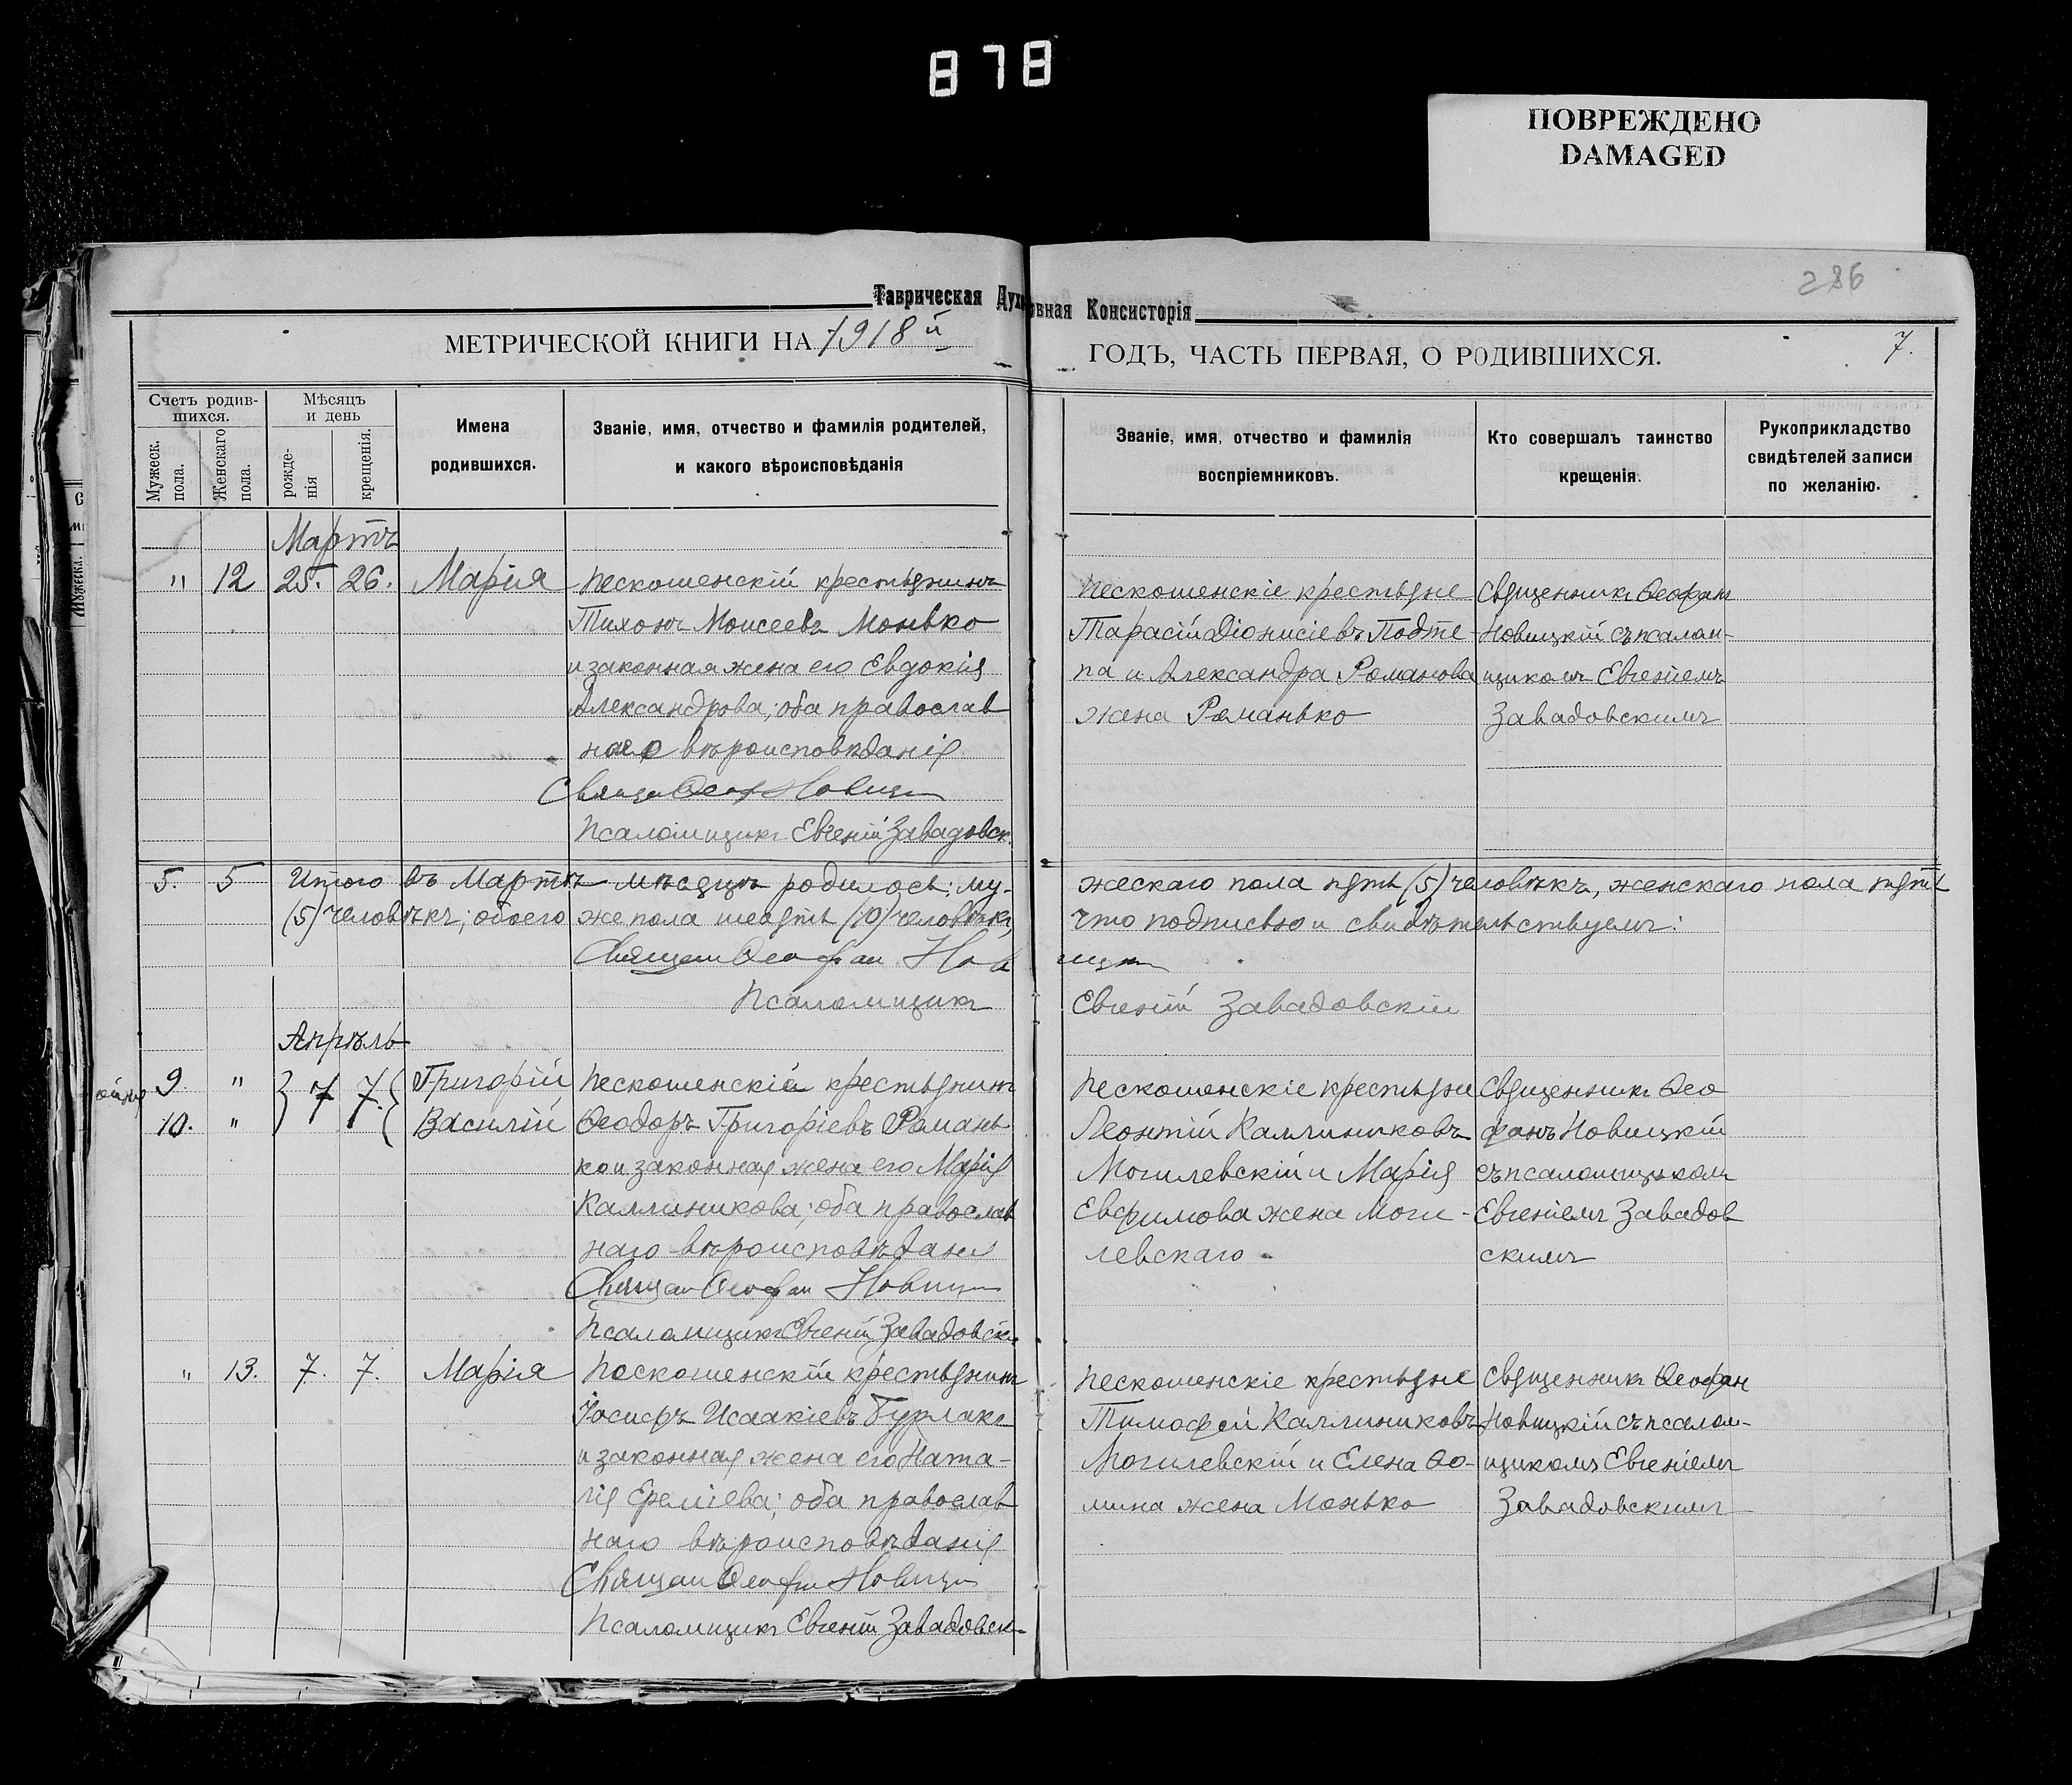 878
ПОВРЕЖДЕНО
DAMAGED
286
Таврическая Духовная Консисторія
МЕТРИЧЕСКОЙ КНИГИ НА 1918й ГОДЪ, ЧАСТЬ ПЕРВАЯ, О РОДИВШИХСЯ.
7.
Счетъ родив-
шихся.
Мужеск. пола.
Женскаго пола.
Мѣсяцъ
и день
рожде-
нія
крещенія.
Имена
родившихся.
Званіе, имя, отчество и фамилія родителей,
и какого вѣроисповѣданія
Званіе, имя, отчество и фамилія
воспріемниковъ.
Кто совершалъ таинство
крещенія.
Рукоприкладство
свидѣтелей записи
по желанію.
Мартъ
" 12 25. 26. Марія
Пескошенскій крестьянинъ
Тихонъ Моисеевъ Монько
и законная жена его Евдокія
Александрова; оба православ
наго вѣроисповѣданія
Псаломщикъ Евгеній Завадовск
Пескошенскіе крестьяне
Тарасій Діонисіевъ Подте-
па и Александра Романова
жена Романько
Священникъ Ѳеофанъ
Новицкій съ псалом-
щикомъ Евгеніемъ
Завадовскимъ
5. 5 Итого въ Мартѣ мѣсяцѣ родилось: му-
жескаго пола пять (5) человѣкъ, женскаго пола пять
(5) человѣкъ; обоего же пола (10) человѣкъ,
что подписью и свидѣтельствуемъ:
Псаломщикъ
Евгеній Завадовскій
Апрѣль
9. " } 7 7. { Григорій,
10. " Василій,
Пескошенскій крестьянинъ
Ѳеодоръ Григоріевъ Романь
ко и законная жена его Марія
Каллиникова; оба православ
наго вѣроисповѣданія
Псаломщикъ Евгеній Завадовск
Пескошенскіе крестьяне
Леонтій Каллиниковъ
Могилевскій и Марія
Евфимова жена Моги-
левскаго
Священникъ Ѳео
фанъ Новицкій
съ псаломщикомъ
Евгеніемъ Завадов
скимъ
" 13. 7. 7. Марія
Пескошенскій крестьянинъ
Іосифъ Исаакіевъ Бурлака
и законная жена его Ната-
лія Ереміева; оба православ
наго вѣроисповѣданія
Псаломщикъ Евгеній Завадовск
Пескошенскіе крестьяне
Тимофей Каллиниковъ
Могилевскій и Елена Ѳо-
мина жена Монько
Священникъ Ѳеофан
Новицкій съ псалом-
щикомъ Евгеніемъ
Завадовскимъ